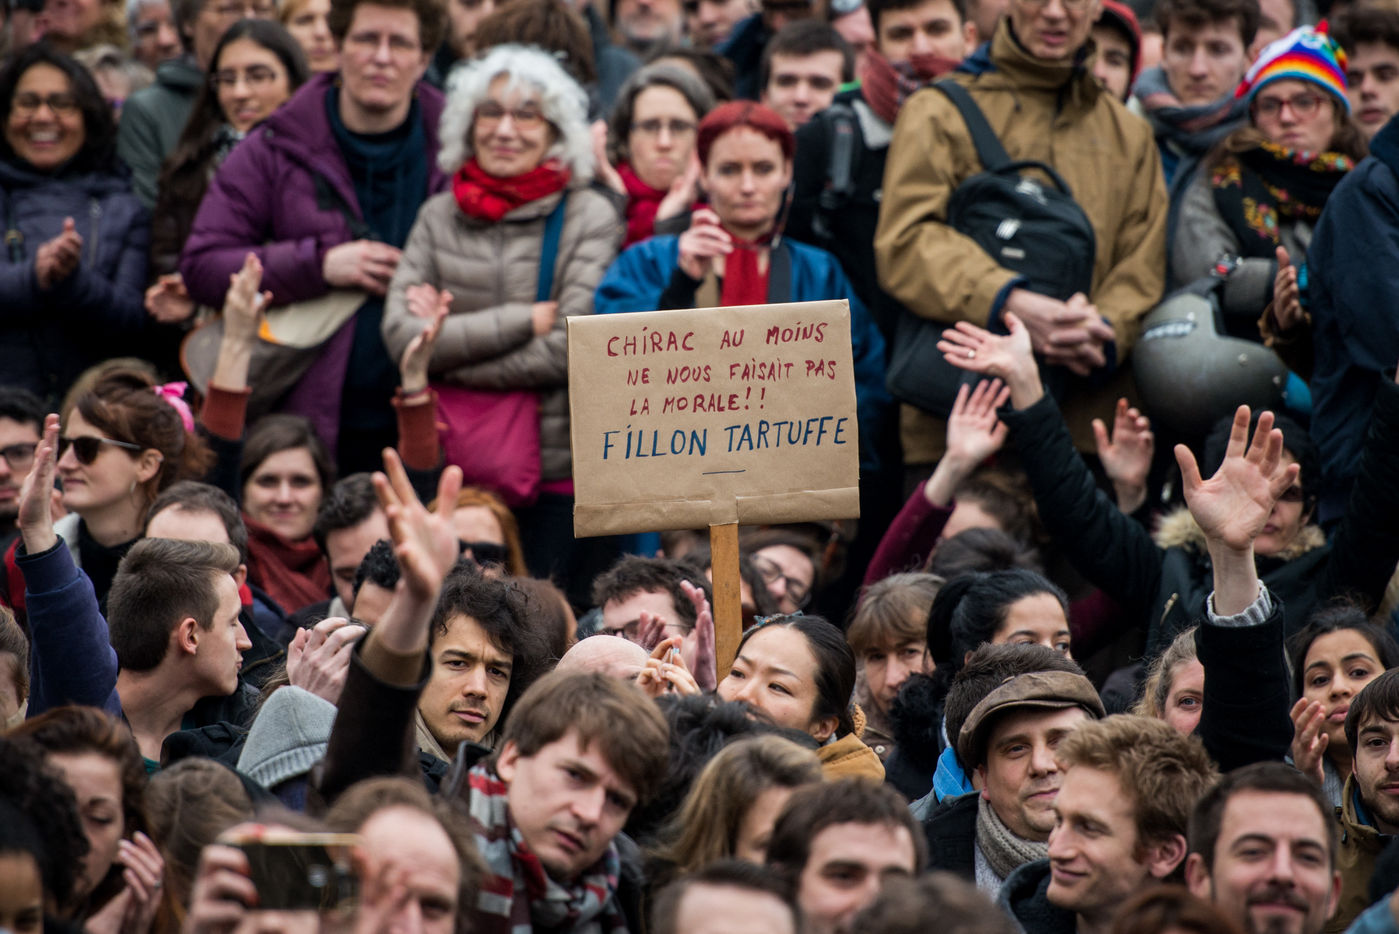 CHIRAC AU MOINS
NE NOUS FAISAIT PAS
LA MORALE!!
FILLON TARTUFFE